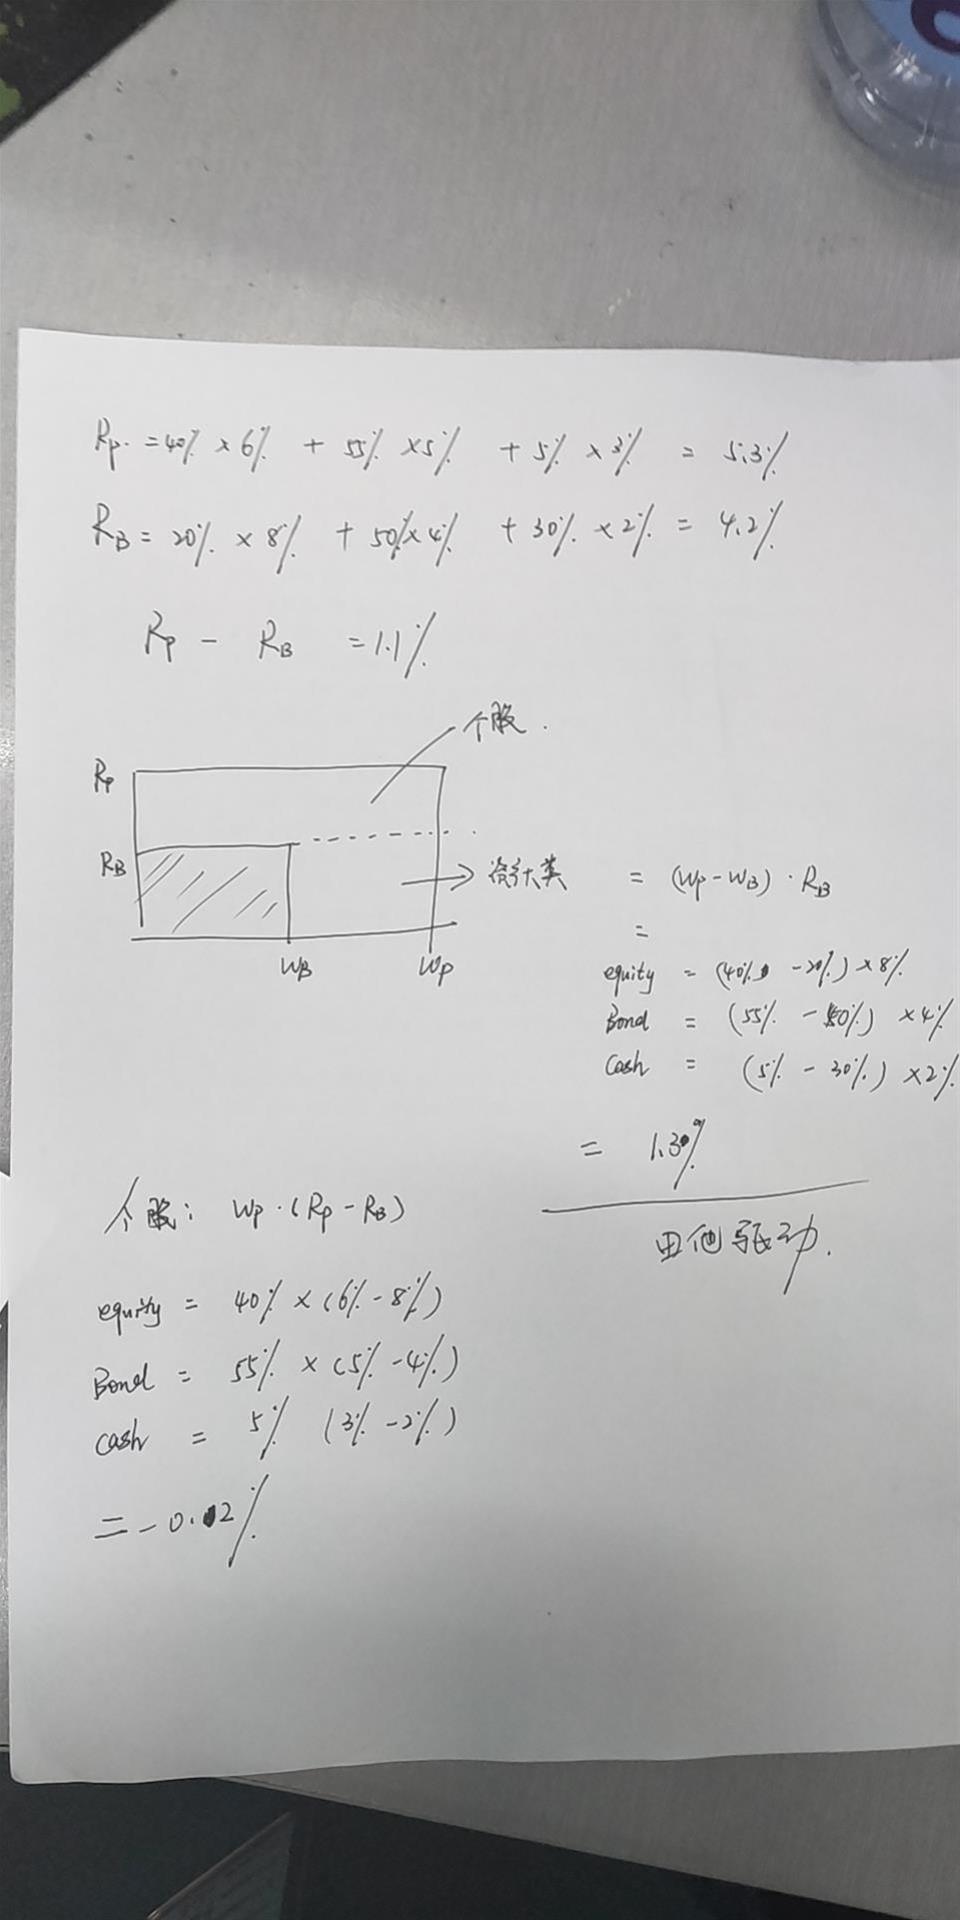 Rp. = 40% × 6% + 55% × 5% + 5% × 3% = 5.3%
RB = 20% × 8% + 50% × 4% + 30% × 2% = 4.2%
Rp - RB = 1.1%
个股.
Rp
RB
大类 = (Wp - WB) · RB
WB Wp
=
equity = (40% - 20%) × 8%
Bond = (55% - 50%) × 4%
Cash = (5% - 30%) × 2%
= 1.3%
由他驱动.
个股: Wp · (Rp - RB)
equity = 40% × (6% - 8%)
Bond = 55% × (5% - 4%)
cash = 5% (3% - 2%)
= -0.2%